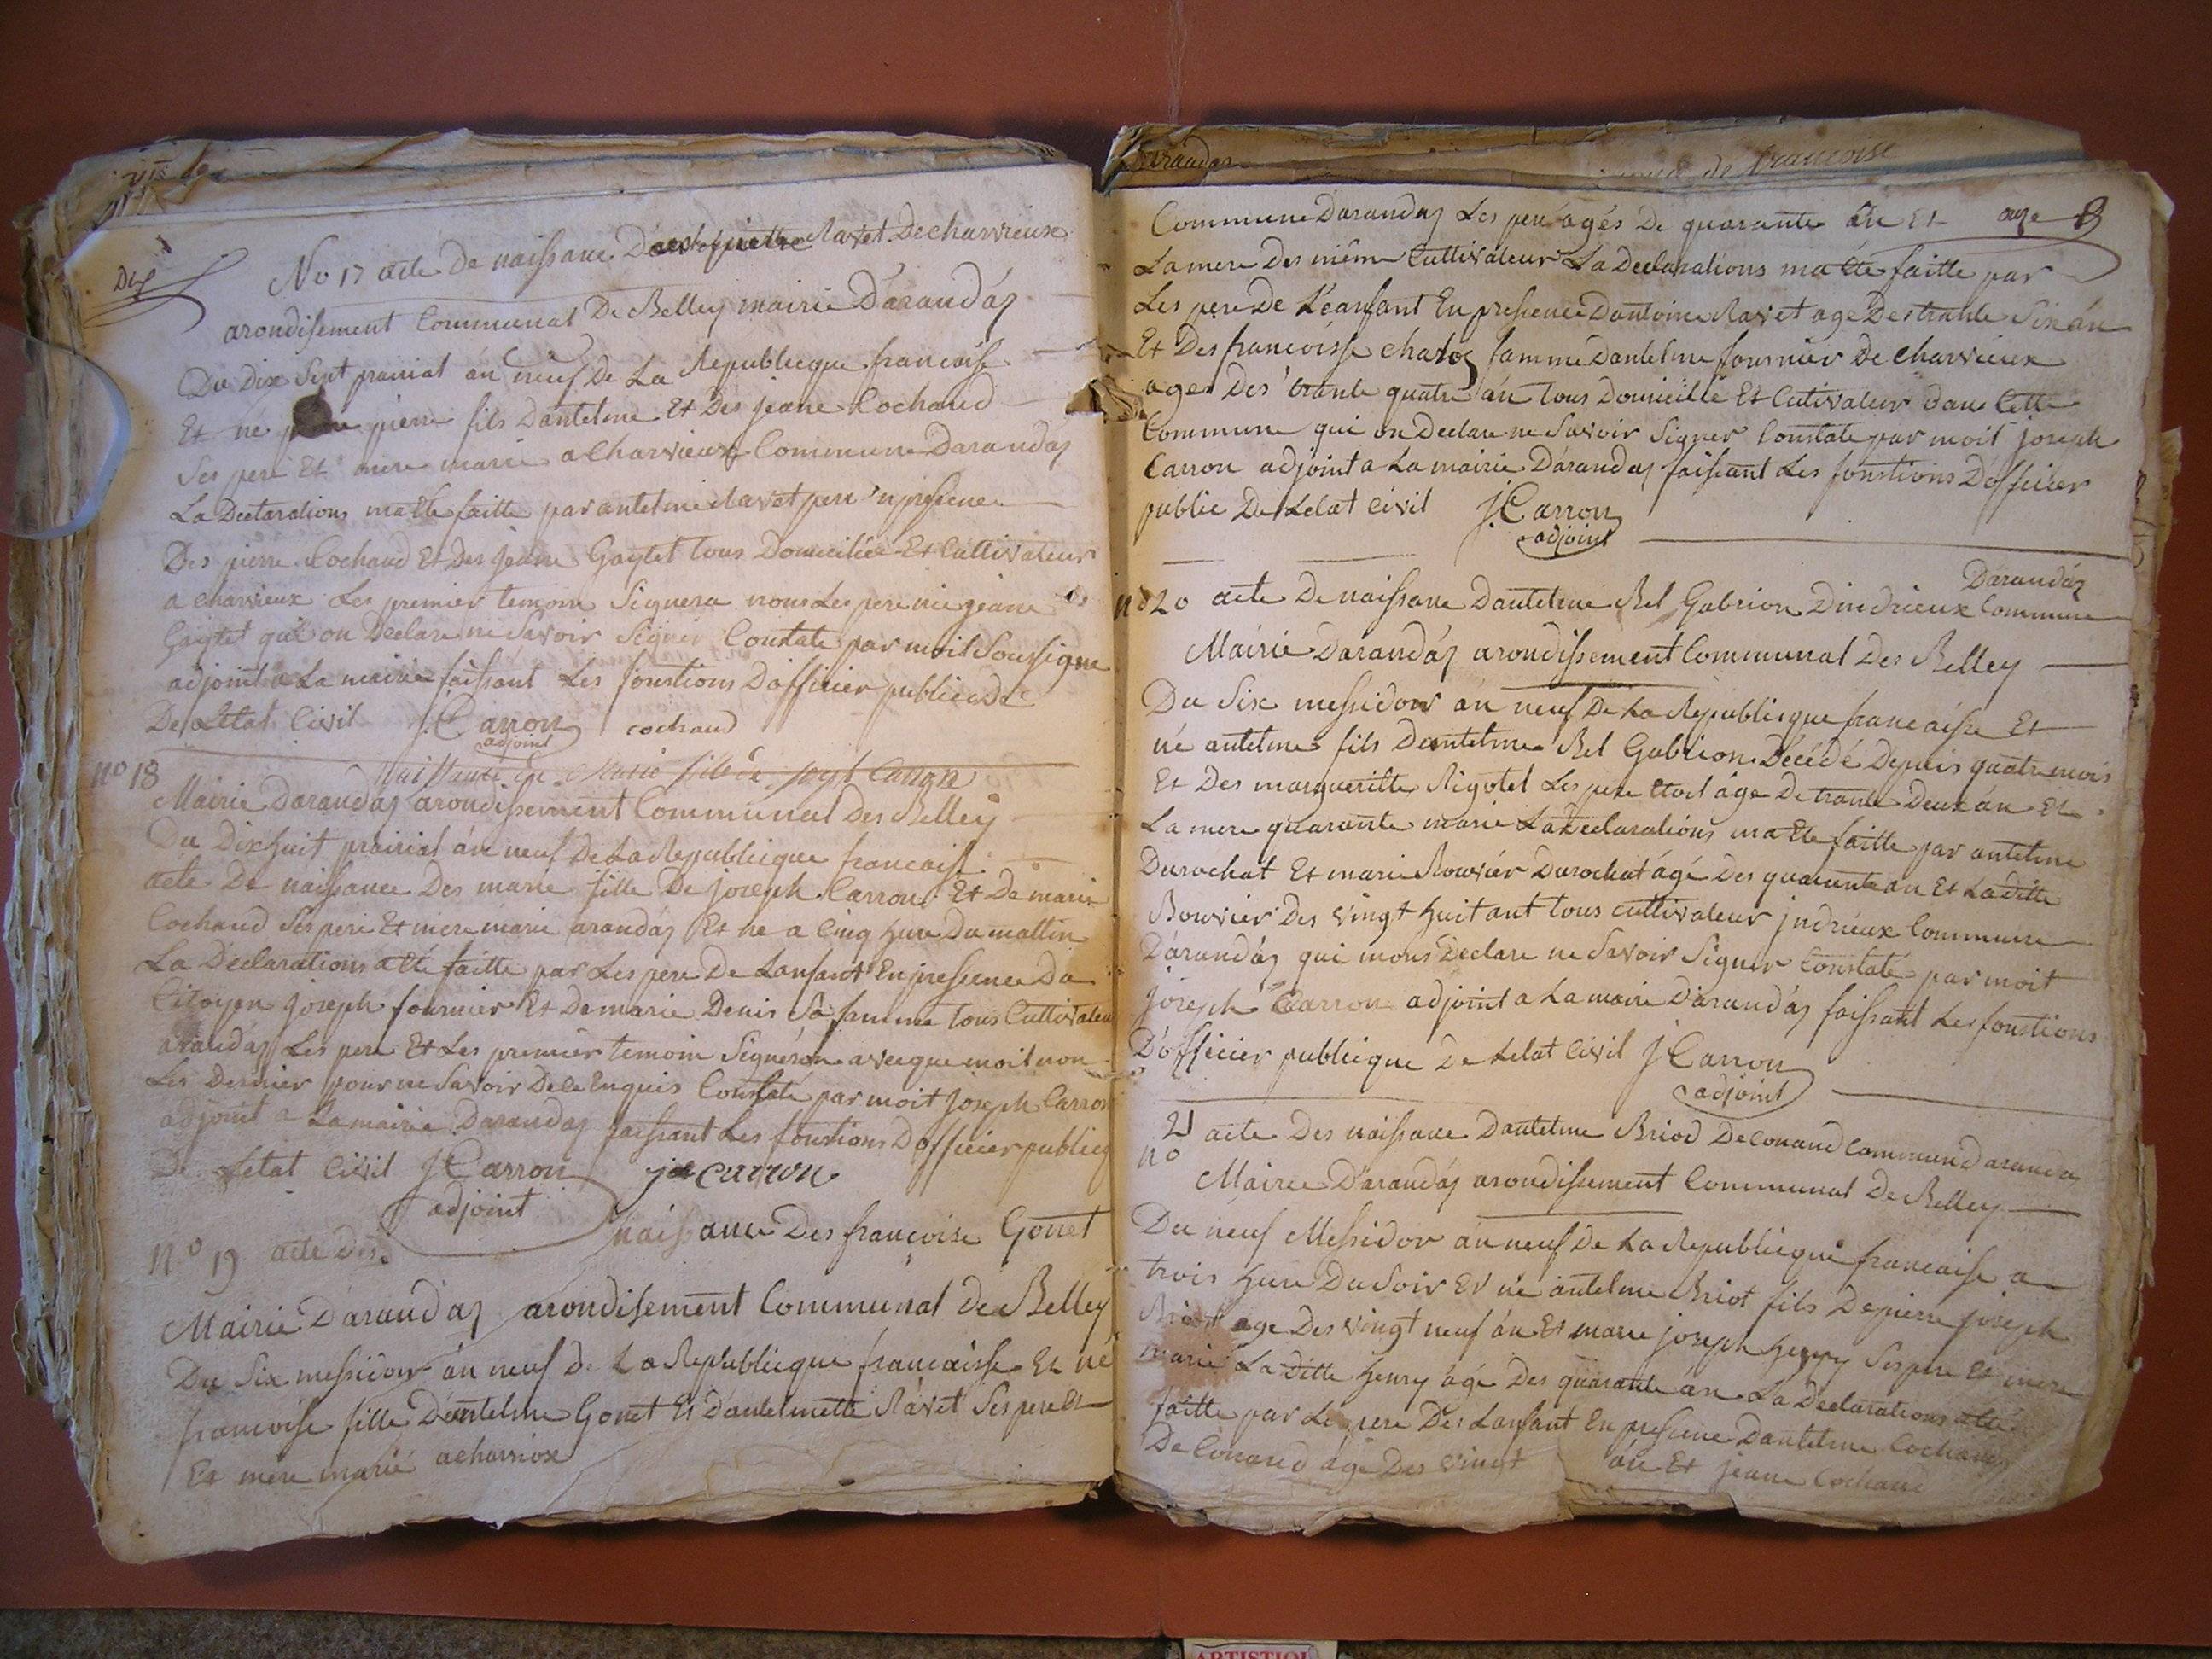 Dix
No 17 acte de naissance Ravet De charvieux
arondisement Communal De Belley mairie D'arandaz
Du Dix Sept prairial án neuf De La Republicque francaise
Et né pierre fils Dantelme Et Des jeane Cochaud
Ses pere Et mere marié a Charvieux Commune Darandaz
La Declarations ma Eté faitte par antelme Ravet pere
Des pierre Cochaud Et Des jeanne Gaytet tous Domiciliée Et Cultivateur
a charvieux Les premier temoin Signera nous Les pere jeane
Gaytet qui on Declare ne Savoir Signer Constate par moit Soussigne
adjoint a La mairie faissant Les fonstions Dofficier publice De
De Letat Civil J. Carron cochaud
adjoint
no 18 Naissance de Marie fille de Carron
Mairie Darandaz arondissement Communal Des Belley
Du Dix huit prairial án neuf De La Republicque francaise
acte De naissance Des marie fille De joseph Carron Et De marie
Cochaud Ses pere Et mere marie arandaz Et ne a Cinq hure Du mattin
La Déclarations a Eté faitte par Les pere De Lanfant En pressence Du
Citoyen joseph fournier Et De marie Denis Sa famme tous Cultivateur
arandaz Les pere Et Les premier temoin Signeron avecque moit non
Les Dernier pour ne Savoir De Ce Enquis Constate par moit joseph Carron
adjoint a La mairie Darandaz faissant Les fonstions Dofficier publicq
De Letat Civil J Carron carron
adjoint
no 19 acte Des naissance Des françoise Gonet
Mairie D'arandaz arondisement Communal De Belley
Du Six messidor án neuf de La Republicque francaisse Et né
francoise fille D'antelme Gonet Et D'antelmette Ravet Ses pere Et
Et mere marié a charviox
arandaz
de francoise
Commune Darandaz Les pere agés De quarante án Et onze
La mere Des même Cultivateur La Declarations ma Eté faitte par
Les pere De L'éanfant En pressence Dantoine Ravet age Des trante Six án
Et Des francoisse famme Dantelme fournier De Charvieux
ages Des trante quatre án tous Domicilié Et Cultivateur dans Cette
Commune qui on Declare ne Savoir Signer Constate par moit joseph
Carron adjoint a La mairie Darandaz faissant Les fonstions D'officier
public De Letat Civil J. Carron
adjoint
Darandaz
no 20 acte De naissance Dantelme Rel Gabrion Dindrieux Commune
Mairie Darandáz arondissement Communal Des Belley
Du Six messidor án neuf De La Republicque francaisse Et
né antelme fils Dantelme Rel Gabrion Décédé Depuis quatre mois
Et Des margueritte Rigotel Les pere étoit áge De trante Deux án Et
La mere quarante marié La Declarations ma Eté faitte par antelme
Durochat Et marie Rouviér Durochat ágé Des quarante án Et La ditte
Rouvier Des vingt huit ant tous cultivateur jndrieux Commune
D'arandáz qui mons Declare ne Savoir Signer Constaté par moit
joseph Carron adjoint a La mairie D'arandáz faissant Les fonstions
D'officier publicque De Letat Civil J Carron
adjoint
21 acte Des naissance Dantelme Briod De Conand Commune Daranda
no
Mairie D'arandáz arondissement Communal De Belley
Du neuf Messidor án neuf De La Republicque francaisse a
trois hure Du Soir Et né antelme Briot fils De pierre joseph
Briot age Des vingt neuf án Et marie joseph henry Ses pere Et mere
marié La Ditte henry ágé Des quarante án La Declarations a Eté
faitte par Le pere Des Lanfant En pressence Dantelme Cochaud
De Conand ágé Des vingt án Et jeanne Cochaud
ARTISTIQU